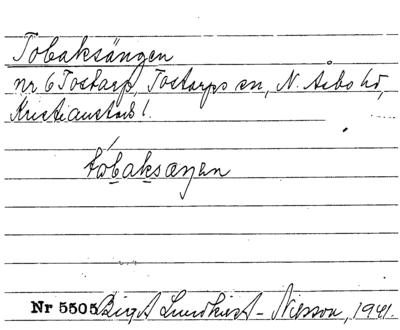 Tobaksängen
nr 6 Tostarp, Tostarps sn, N. Åsbo hd,
Kristianstads l.
tóbaksæŋen
Nr 5505 Birgit Lundkvist-Nilsson, 1941.